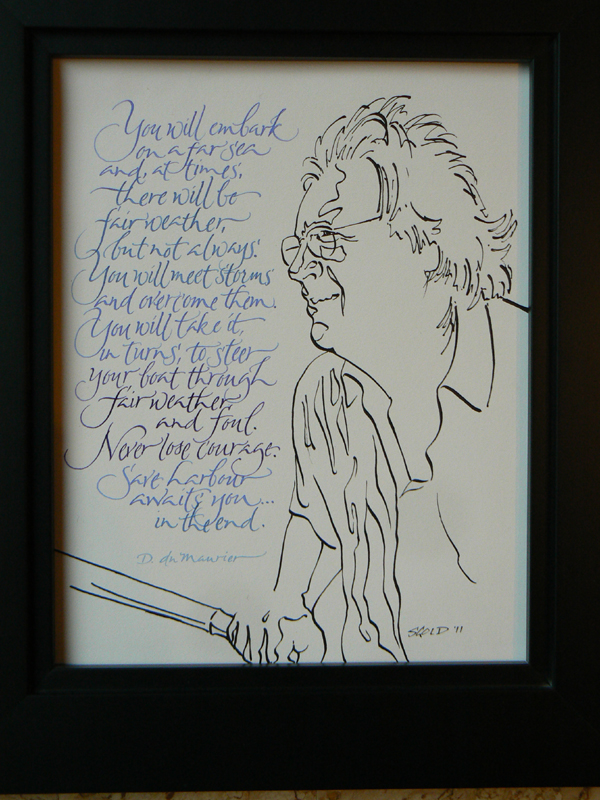 You will embark
on a far sea
and, at times,
there will be
fair weather,
but not always.
You will meet storms
and overcome them.
You will take it,
in turns, to steer
your boat through
fair weather
and foul.
Never lose courage.
Save harbour
awaits you...
in the end.
D. du Maurier
SGOLD '11